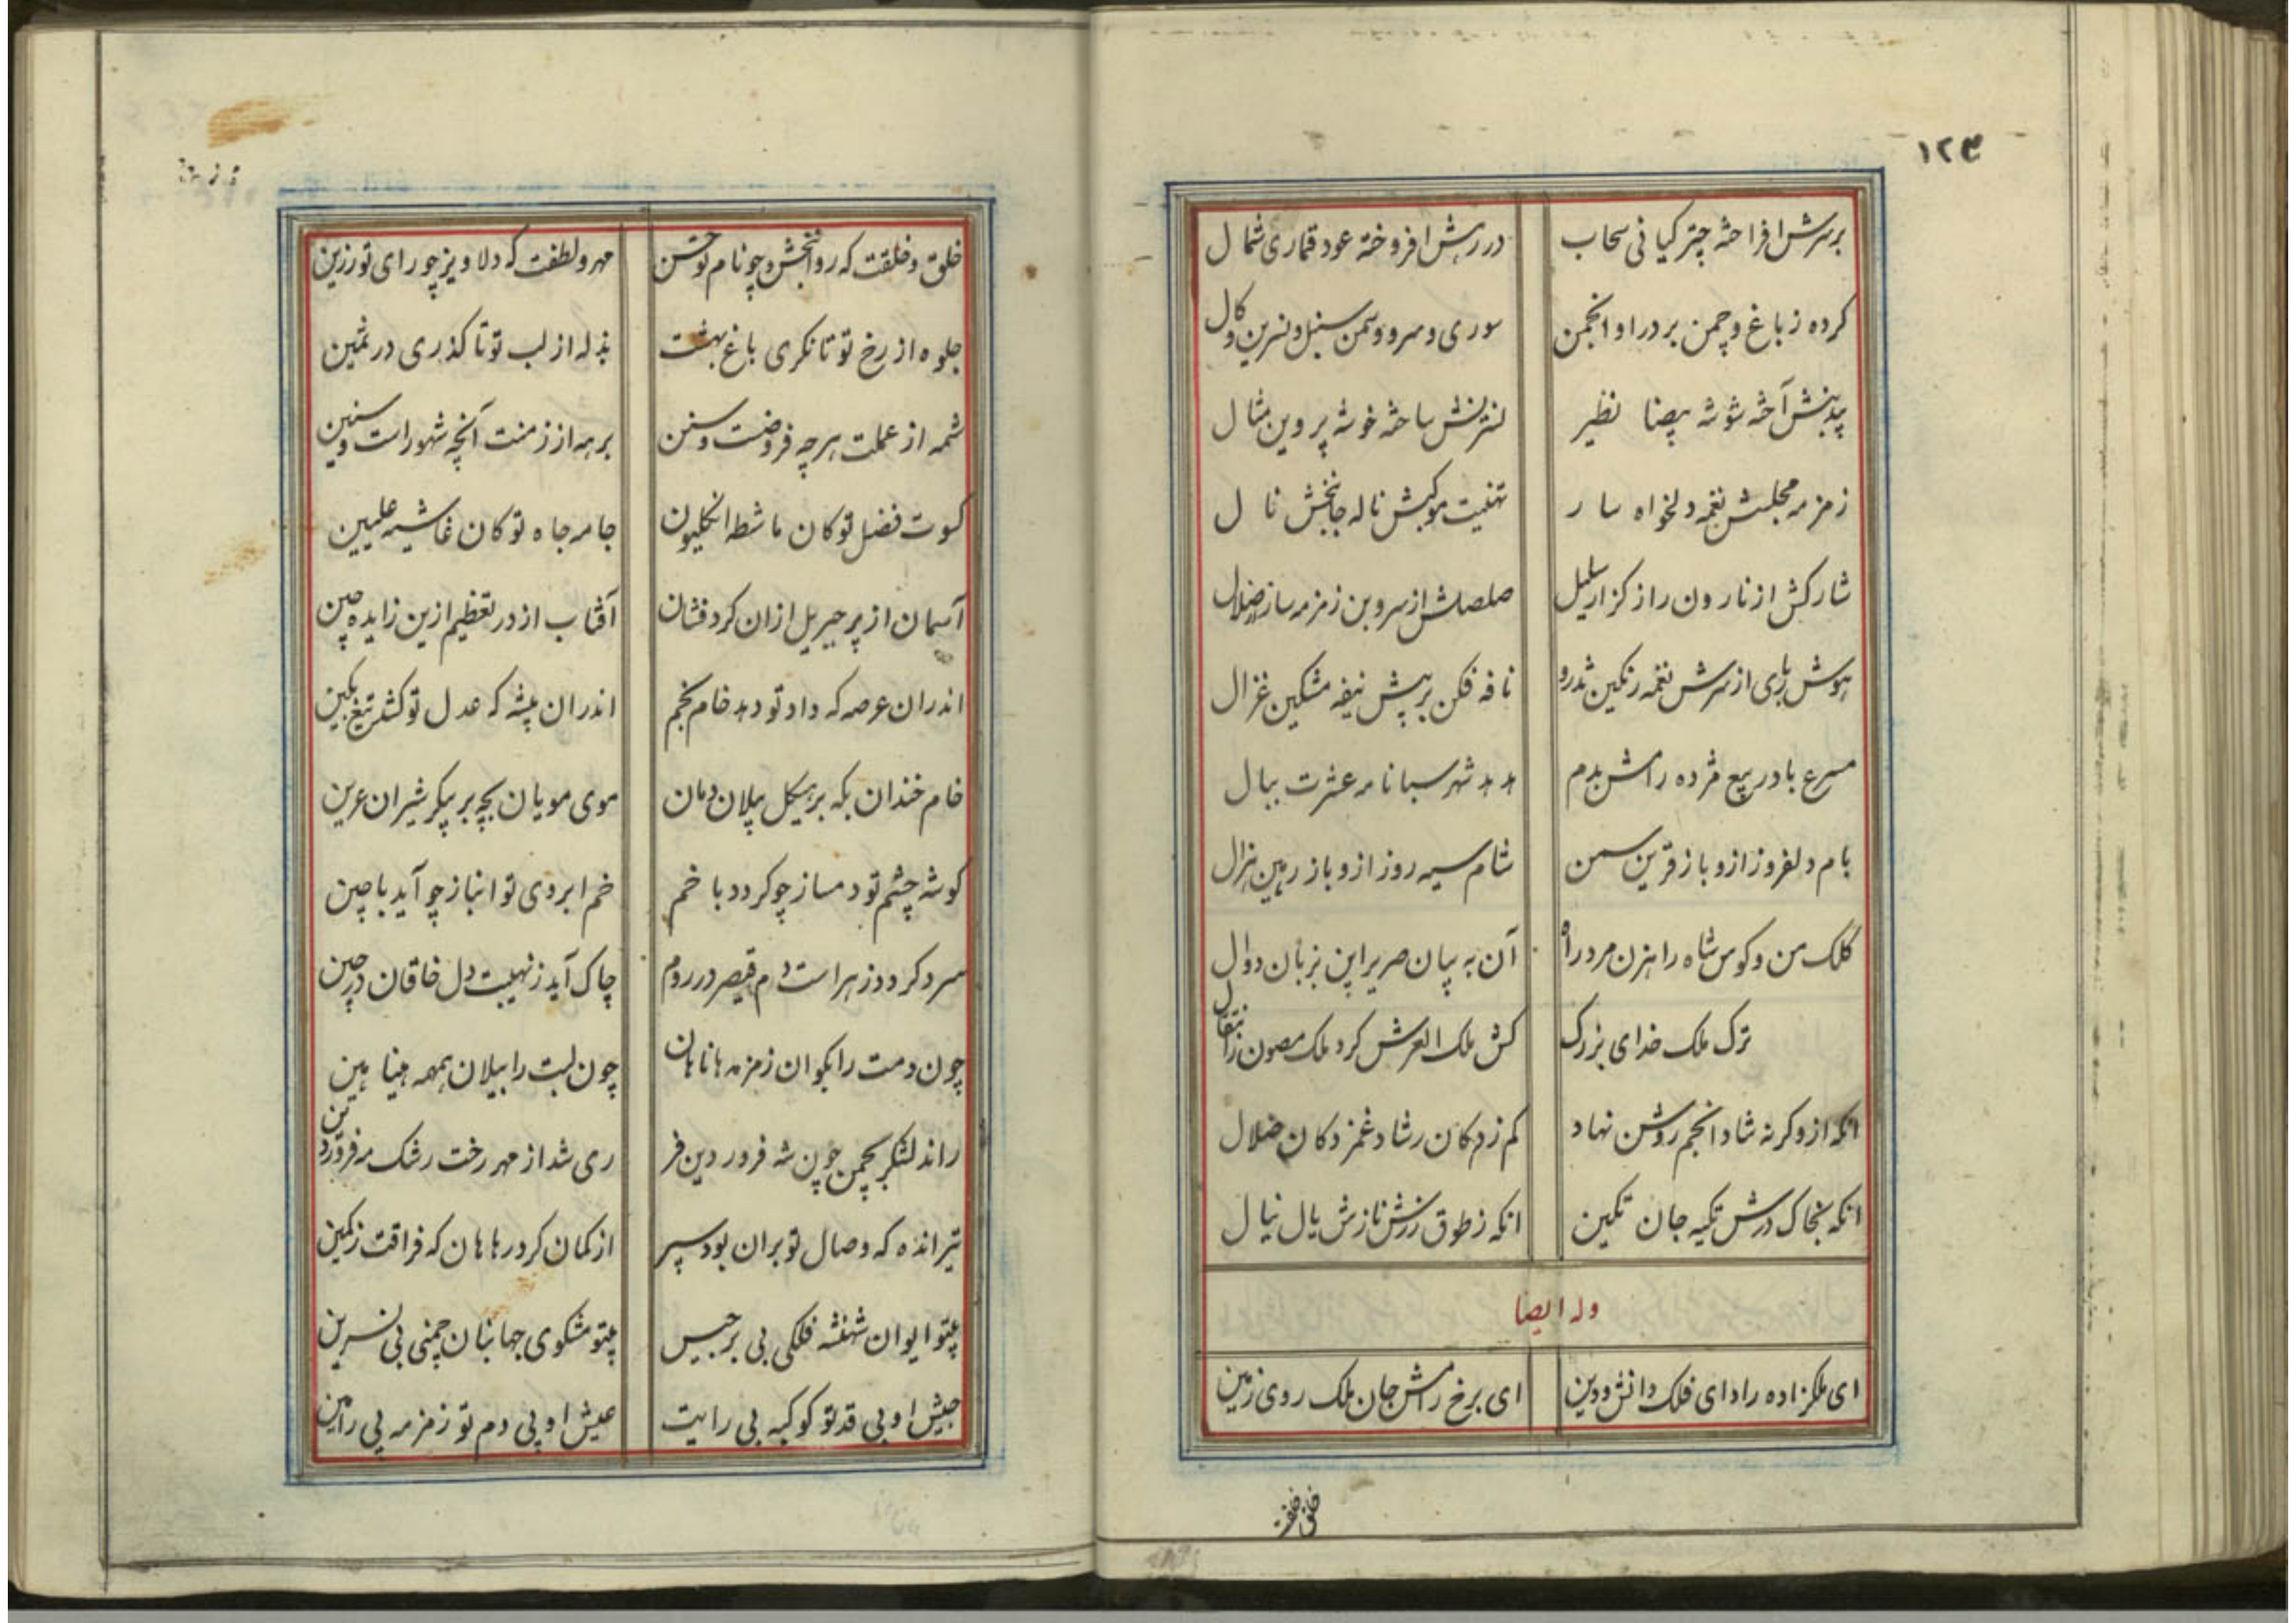 ۱۲۴
برسرش افراخته چتر کیانی سحاب در رهش افروخته عود قماری شمال
کرده ز باغ و چمن بر در او انجمن سوری و سرو و سمن سنبل و نسرین و کال
بیدبنش آخته شوشه بیضا نظیر نسترنش ساخته خوشه پروین مثال
زمزمه مجلسش نغمه دلخواه سار تهنیت موکبش ناله جانبخش نال
شارکش از نارون راز کزار سلیل صلصلش از سروبن زمزمه ساز ضلال
هوش ربای از سرش نغمه رنکین تذرو نافه فکن بر پیش نیفه مشکین غزال
مسرع باد ربیع مژده رامش بدم هدهد شهر سبا نامه عشرت ببال
بام دلفروز ازو باز قرین سمن شام سیه روز ازو باز رهین نزال
کلک من و کوس شاه راهزن مرد راه آن به بیان صریر این بزبان دوال
ترک ملک خدای بزرک کش ملک العرش کرد ملک مصون ز انتقال
انکه ازو کرنه شاد انجم روشن نهاد کم زدکان رشاد غمزدکان ضلال
انکه بخاک درش تکیه جان تکین انکه ز طوق زرش نازش یال نیال
وله ایضا
ای ملکزاده راد ای فلک دانش و دین ای برخ رامش جان ملک روی زمین
خلق و خلقت
خلق و خلقت که روانبخش و چو نام تو حسن مهر و لطفت که دلاویز چو رای تو رزین
جلوه از رخ تو تا نکری باغ بهشت بذله از لب تو تا کذری در ثمین
شمه از عملت هرچه فروضست و سنن برهه از زمنت آنچه شهور است و سنین
کسوت فضل تو کان ماشطه انکلیون جامه جاه تو کان غاشیه علیین
آسمان از پر جبریل ازان کرد فشان آفتاب از در تعظیم ازین زاید چین
اندران عرصه که داد تو دهد خام بخم اندران بیشه که عدل تو کشد تیغ بکین
خام خندان بکه بر هیکل پیلان دمان موی مویان بچه بر پیکر شیران عرین
کوشه چشم تو دمساز چو کردد با خم خم ابروی تو انباز چو آید با چین
سرد کردد ز هراست دم قیصر در روم چاک آید ز نهیبت دل خاقان در چین
چون دمت را بکوان زمزمه هاناهان چون لبت را بیلان همهمه هیناهین
راند لشکر بچمن چون شه فروردین فر ری شد از مهر رخت رشک مه فروردین
تیر انده که وصال تو بران بود سپر از کمان کرد رها هان که فراقت ز کمین
بیتو ایوان شهنشه فلکی بی برجیس بیتو مشکوی جهانبان چمنی بی نسرین
جیش او بی قد تو کوکبه بی رایت عیش او بی دم تو زمزمه بی رامین